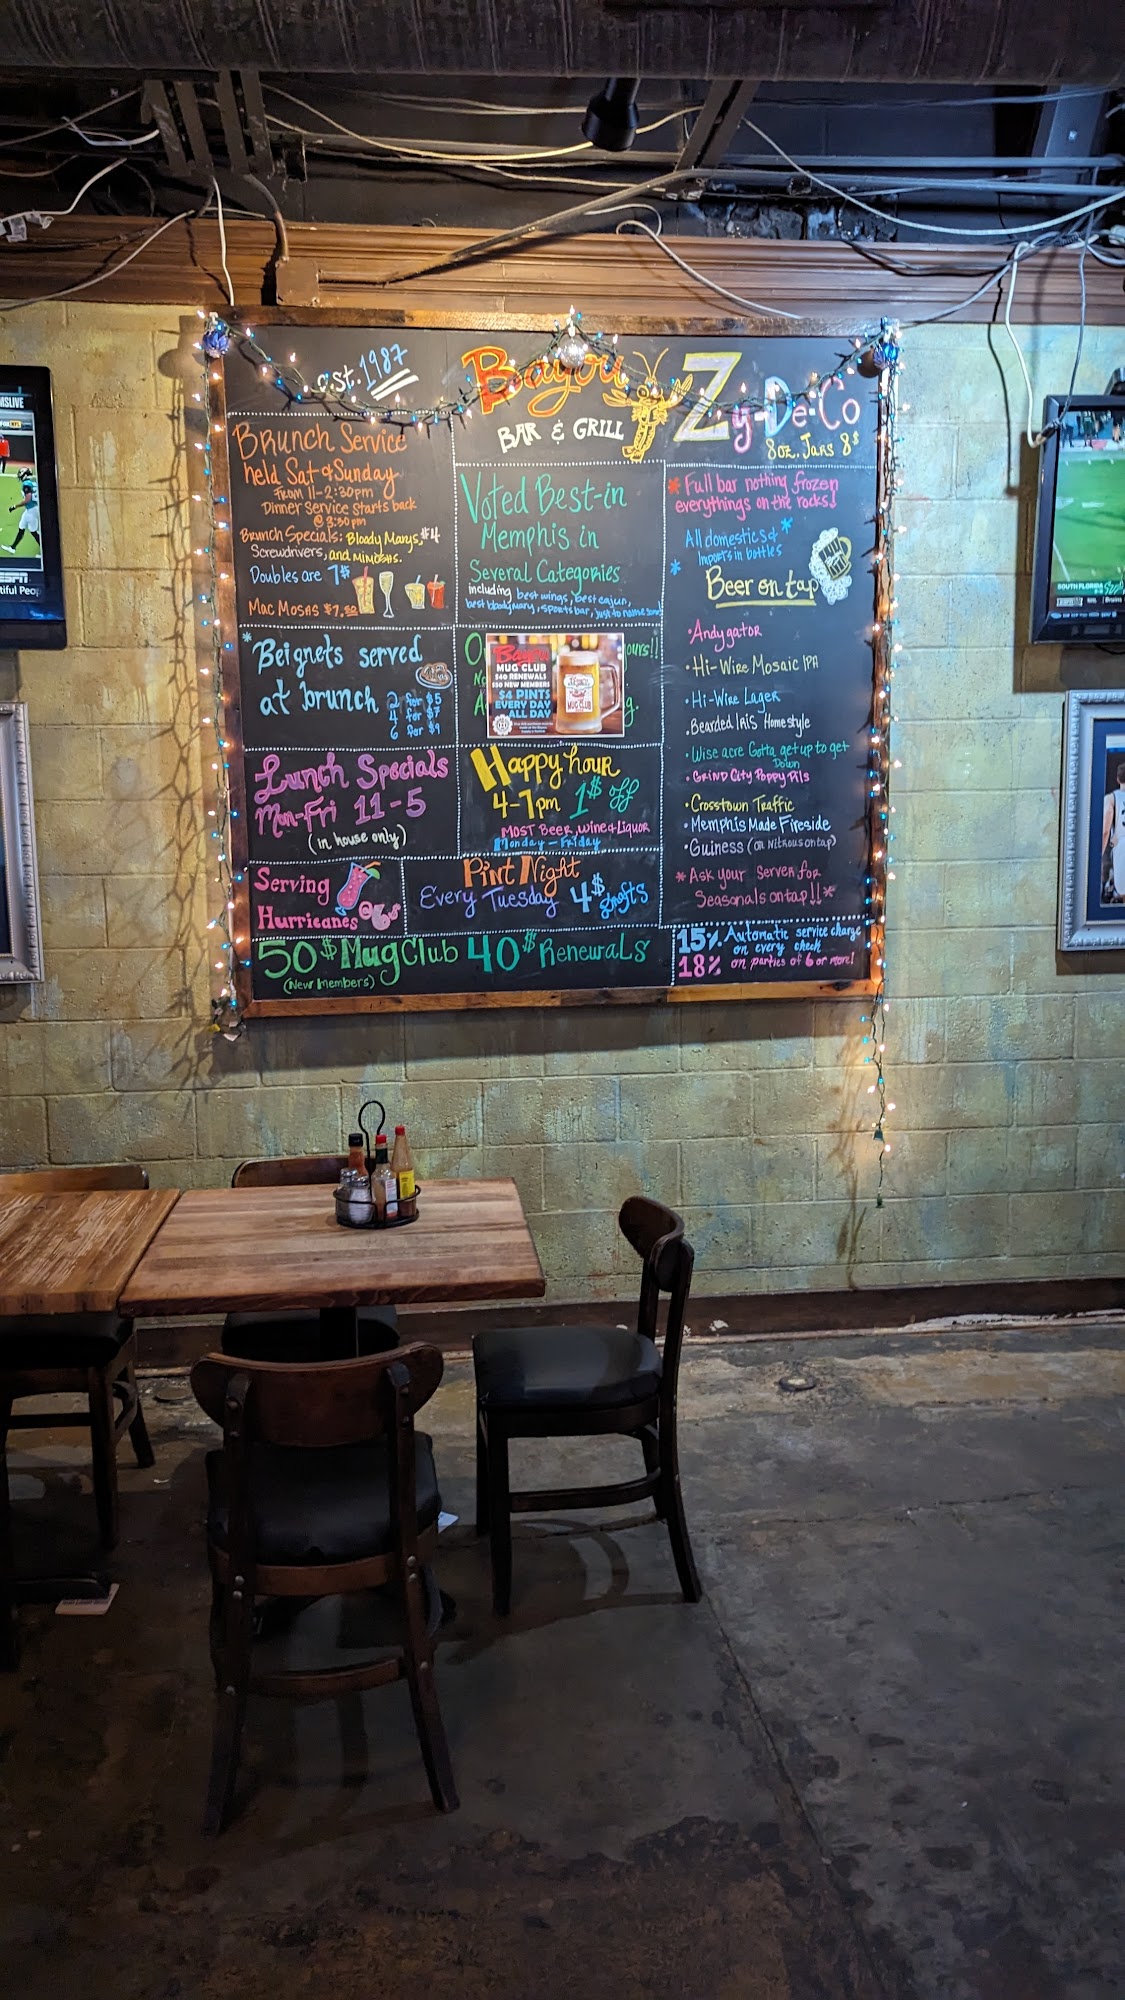 est. 1987
Bayou
BAR & GRILL
Zy-De-Co
8oz. Jars 8$
Brunch Service
held Sat & Sunday
From 11-2:30pm
Dinner Service Starts back
@ 3:30pm
Brunch Specials: Bloody Marys, $4
Screwdrivers, and Mimosas.
Doubles are 7$
Mac Mosas $7.50
*Beignets served
at brunch
2 for $5
4 for $7
6 for $9
Lunch Specials
Mon-Fri 11-5
(in house only)
Serving
Hurricanes @ 6$
50$ Mug Club 40$ Renewals
(New Members)
Voted Best-in
Memphis in
Several Categories
including best wings, best cajun,
best bloody mary, sports bar, just to name some
ours!!
Bayou
MUG CLUB
$40 RENEWALS
$50 NEW MEMBERS
$4 PINTS
EVERY DAY
ALL DAY
MUG CLUB
Happy hour
4-7pm 1$ off
MOST Beer, wine & Liquor
Monday - Friday
Pint Night
Every Tuesday 4$ drafts
* Full bar nothing frozen
everythings on the rocks!
All domestics &
* Imports in bottles *
Beer on tap
• Andygator
• Hi-Wire Mosaic IPA
• Hi-Wire Lager
• Bearded Iris Homestyle
• Wise acre Gotta get up to get
Down
• Grind City Poppy Pils
• Crosstown Traffic
• Memphis Made Fireside
• Guiness (on Nitrous on tap)
*Ask your Server for
Seasonals on tap!!*
15% Automatic service charge
on every check
18% on parties of 6 or more!
ESPN
SOUTH FLORIDA
NHL Bruins